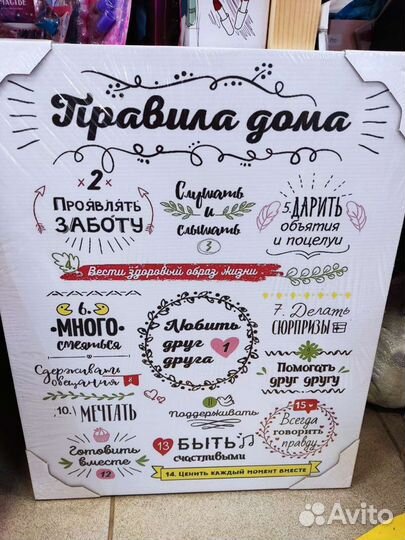 Правила дома
2
ПРОЯВЛЯТЬ
ЗАБОТУ
Слушать
и
слышать
3
5. ДАРИТЬ
объятия
и поцелуи
4
Вести здоровый образ жизни
6.
МНОГО
смеяться
Любить
друг
друга
1
7. Делать
СЮРПРИЗЫ
Сдерживать
обещания
8
Помогать
друг другу
10. МЕЧТАТЬ
11
Поддерживать
15
Всегда
говорить
правду
Готовить
вместе
12
13 БЫТЬ
счастливыми
14. ЦЕНИТЬ КАЖДЫЙ МОМЕНТ ВМЕСТЕ
Avito